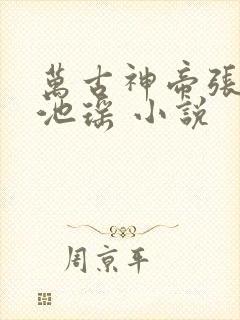 萬古神帝張
池瑤 小說
周京平